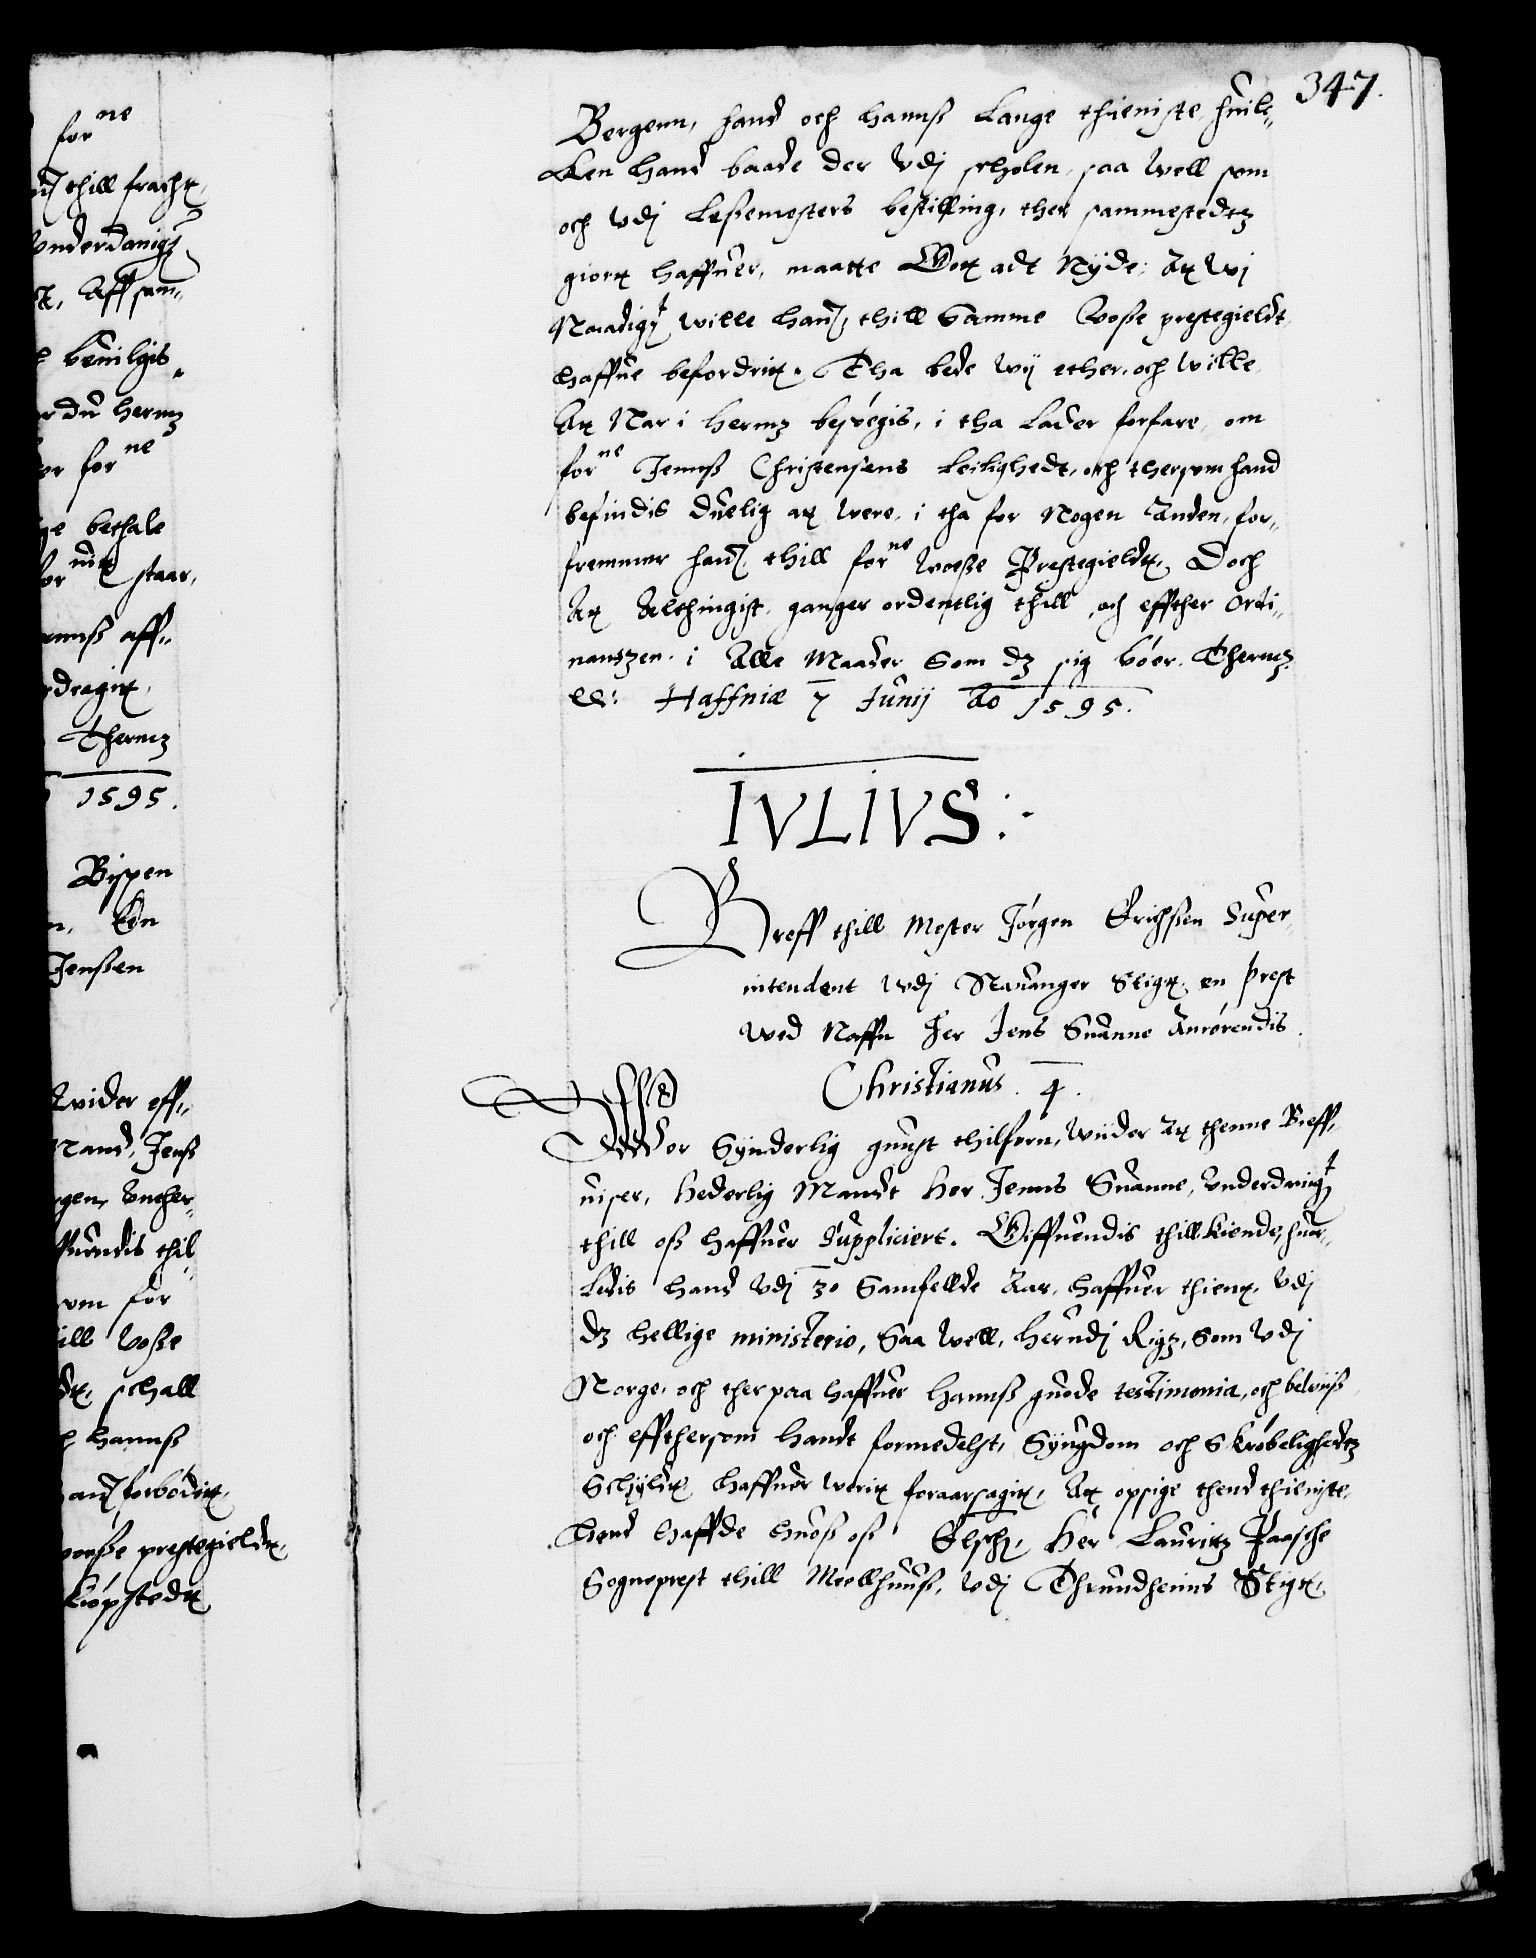 347.
for ne
thill fracht,
Vnderdanigst
Aff sam„
beuilgis„
du hermz
for ne
bethale
staar,
aff„
draget,
Thermz
1595.
Bispen
Edn
Jenßen
wider eff„
Mand, Jenß
Vnther„
thil„
om for
ill Voße
schall
hannß
forbødet,
woeße prestegieldt,
kiøpstedt
Bergenn, hand och hannß Lange thieniste, huil„
cken hand baade der Vdj scholen, saa well som
och Vdj Leßemesters bestilling, ther sammestedtz
giort haffuer, maatte Gott adt Nyde, At wj
Naadigst wille hannem, thill Samme Voße prestegieldt
haffue befordrit. Tha bede wij ether, och wille
At Nar i hermz bespregis, i tha Lader forfare, om
for ne Jennß Christensens Leilighedt, och thersom hand
befindis duelig at were, i tha for Nogen Anden, for„
fremmer hannem thill for ne woeße Prestegieldt, Doch
At Althingist, ganger ordentlig thill, och effther Ordi„
nantzen i Alle Maader Som dz sig bøer. Thermz
etc: Haffniæ 7 Junij Ao 1595.
IVLIVS:
Breff thill Mester Jørgen Erichßen Super„
intendent Vdj Stauanger Stigt, en Prest
wed Naffn Her Jens Suanne Anrørendis.
Christianus. 4.
Wor Synderlig gunst thilforn, wiider At thenne Breff„
uiser, hederlig Mandt Her Jenns Suanne, Vnderdanigst
thill oß haffuer Suppliciert. Giffuendis thillkiende, huor„
ledis hand Vdj 30 Samfellde Aar, haffuer thient, Vdj
dz hellige ministerio, Saa well, herudj Rigt, som Vdj
Norge, och ther paa haffuer hannß guode testimonia, och beluiß
och effthersom handt formedelst, Syugdom och Skrøbelighedtz
Schyldt, haffuer werit foraarsaget, At opsige thend thieniste,
hand haffde huoß oß Elsch, Her Lauritz Paasche
Sogneprest thill Meellhuuß, Vdj Thrundheims Stigt,